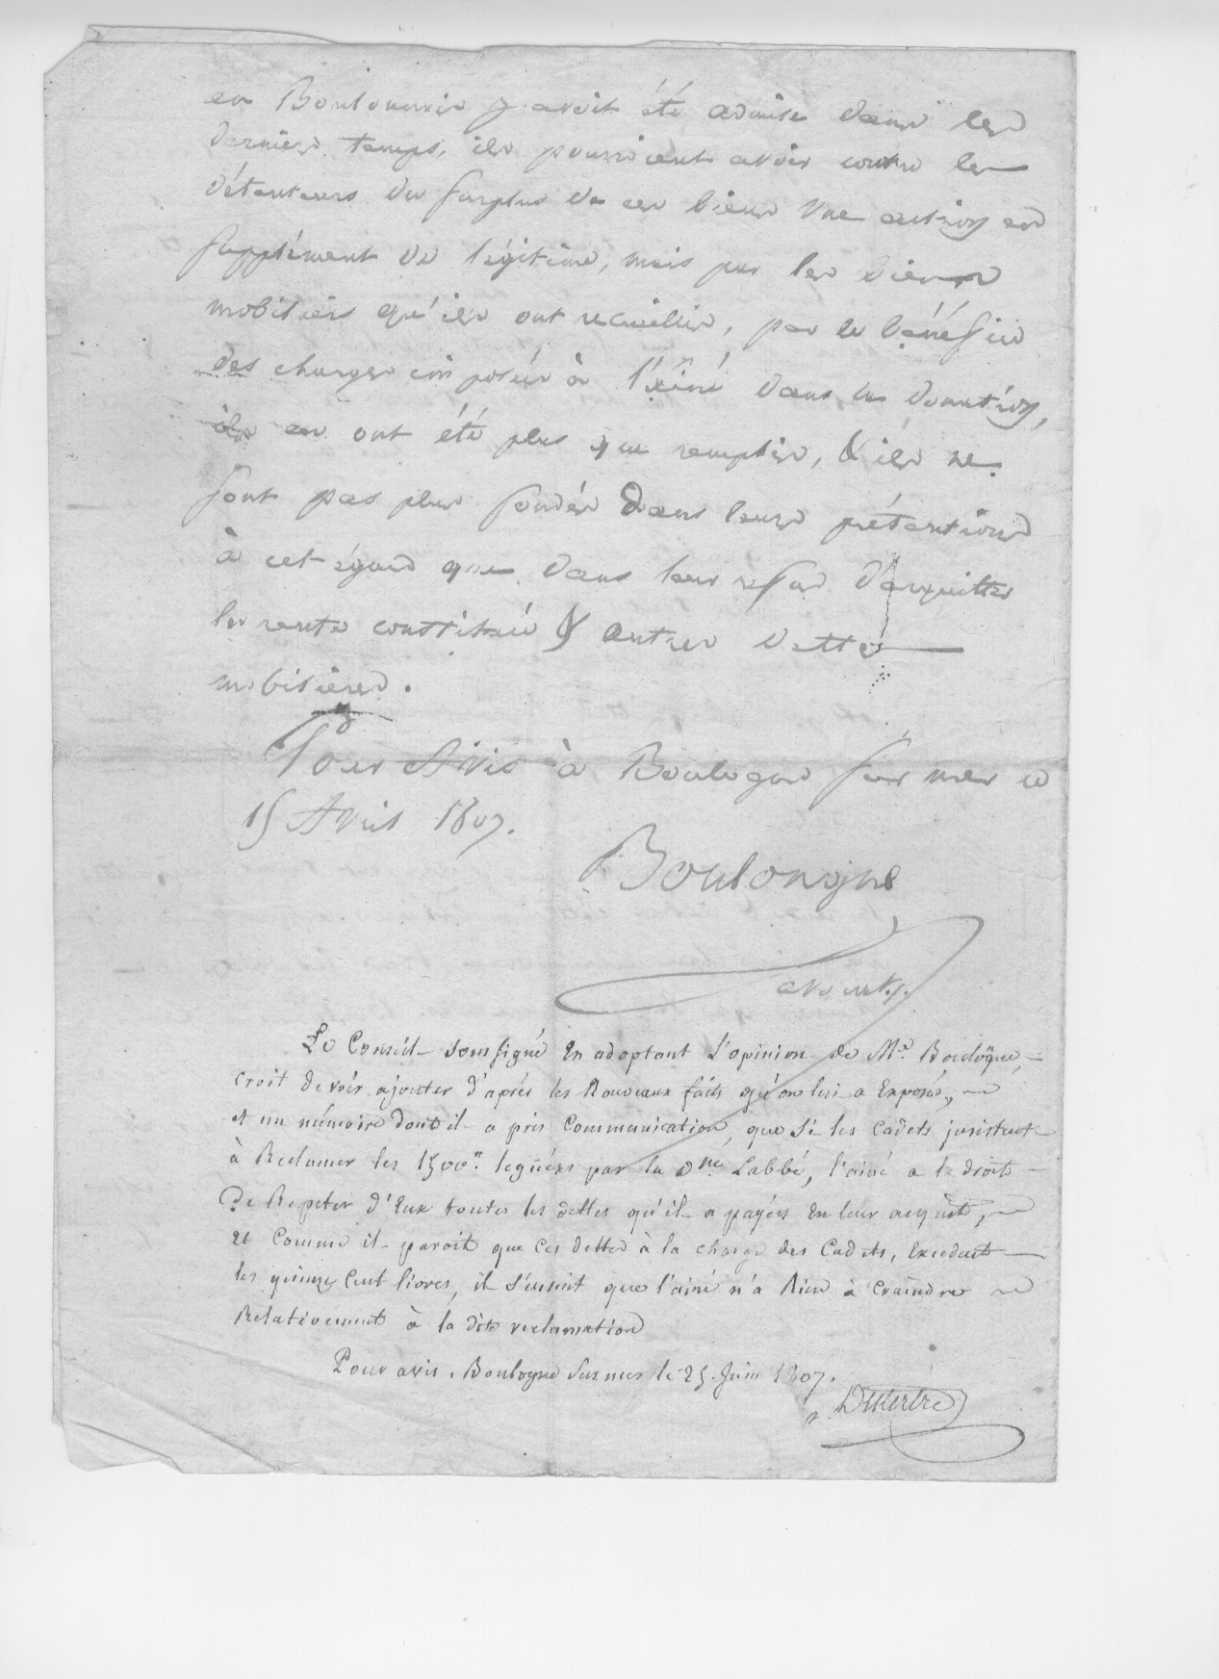 en Boulonnois y avoit été admise dans les
derniers temps, ils pourroient avoir contre les
détenteurs du surplus de ces biens une action en
supplément de légitime, mais par les biens
mobiliers qu'ils ont recueillis, par le bénéfice
des charges imposées à l'aîné dans la donation,
ils en ont été plus que remplis, & ils ne
sont pas plus fondés dans leurs prétentions
à cet égard que dans leur refus d'acquitter
les rentes constituées & autres dettes
mobilières.
Pour Avis à Boulogne sur mer ce
15 Avril 1807.
Boulongne
avocat
Le Conseil soussigné En adoptant l'opinion de Mr. Boulogne,
croit devoir ajouter d'après les Nouveaux faits qu'on lui a Exposés,
et un mémoire dont il a pris Communication, que si les Cadets insistent
à Reclamer les 1500 # legués par la Dme. Labbé, l'ainé a le droit
De Repeter d'Eux toutes les dettes qu'il a payées En leur acquit,
et Comme il paroit que Ces dettes à la charge des Cadets, Excedent
les quinze Cent livres, il s'ensuit que l'ainé n'a Rien à Craindre
Relativement à la dite reclamation
Pour avis. Boulogne sur mer le 25. Juin 1807.
Dutertre